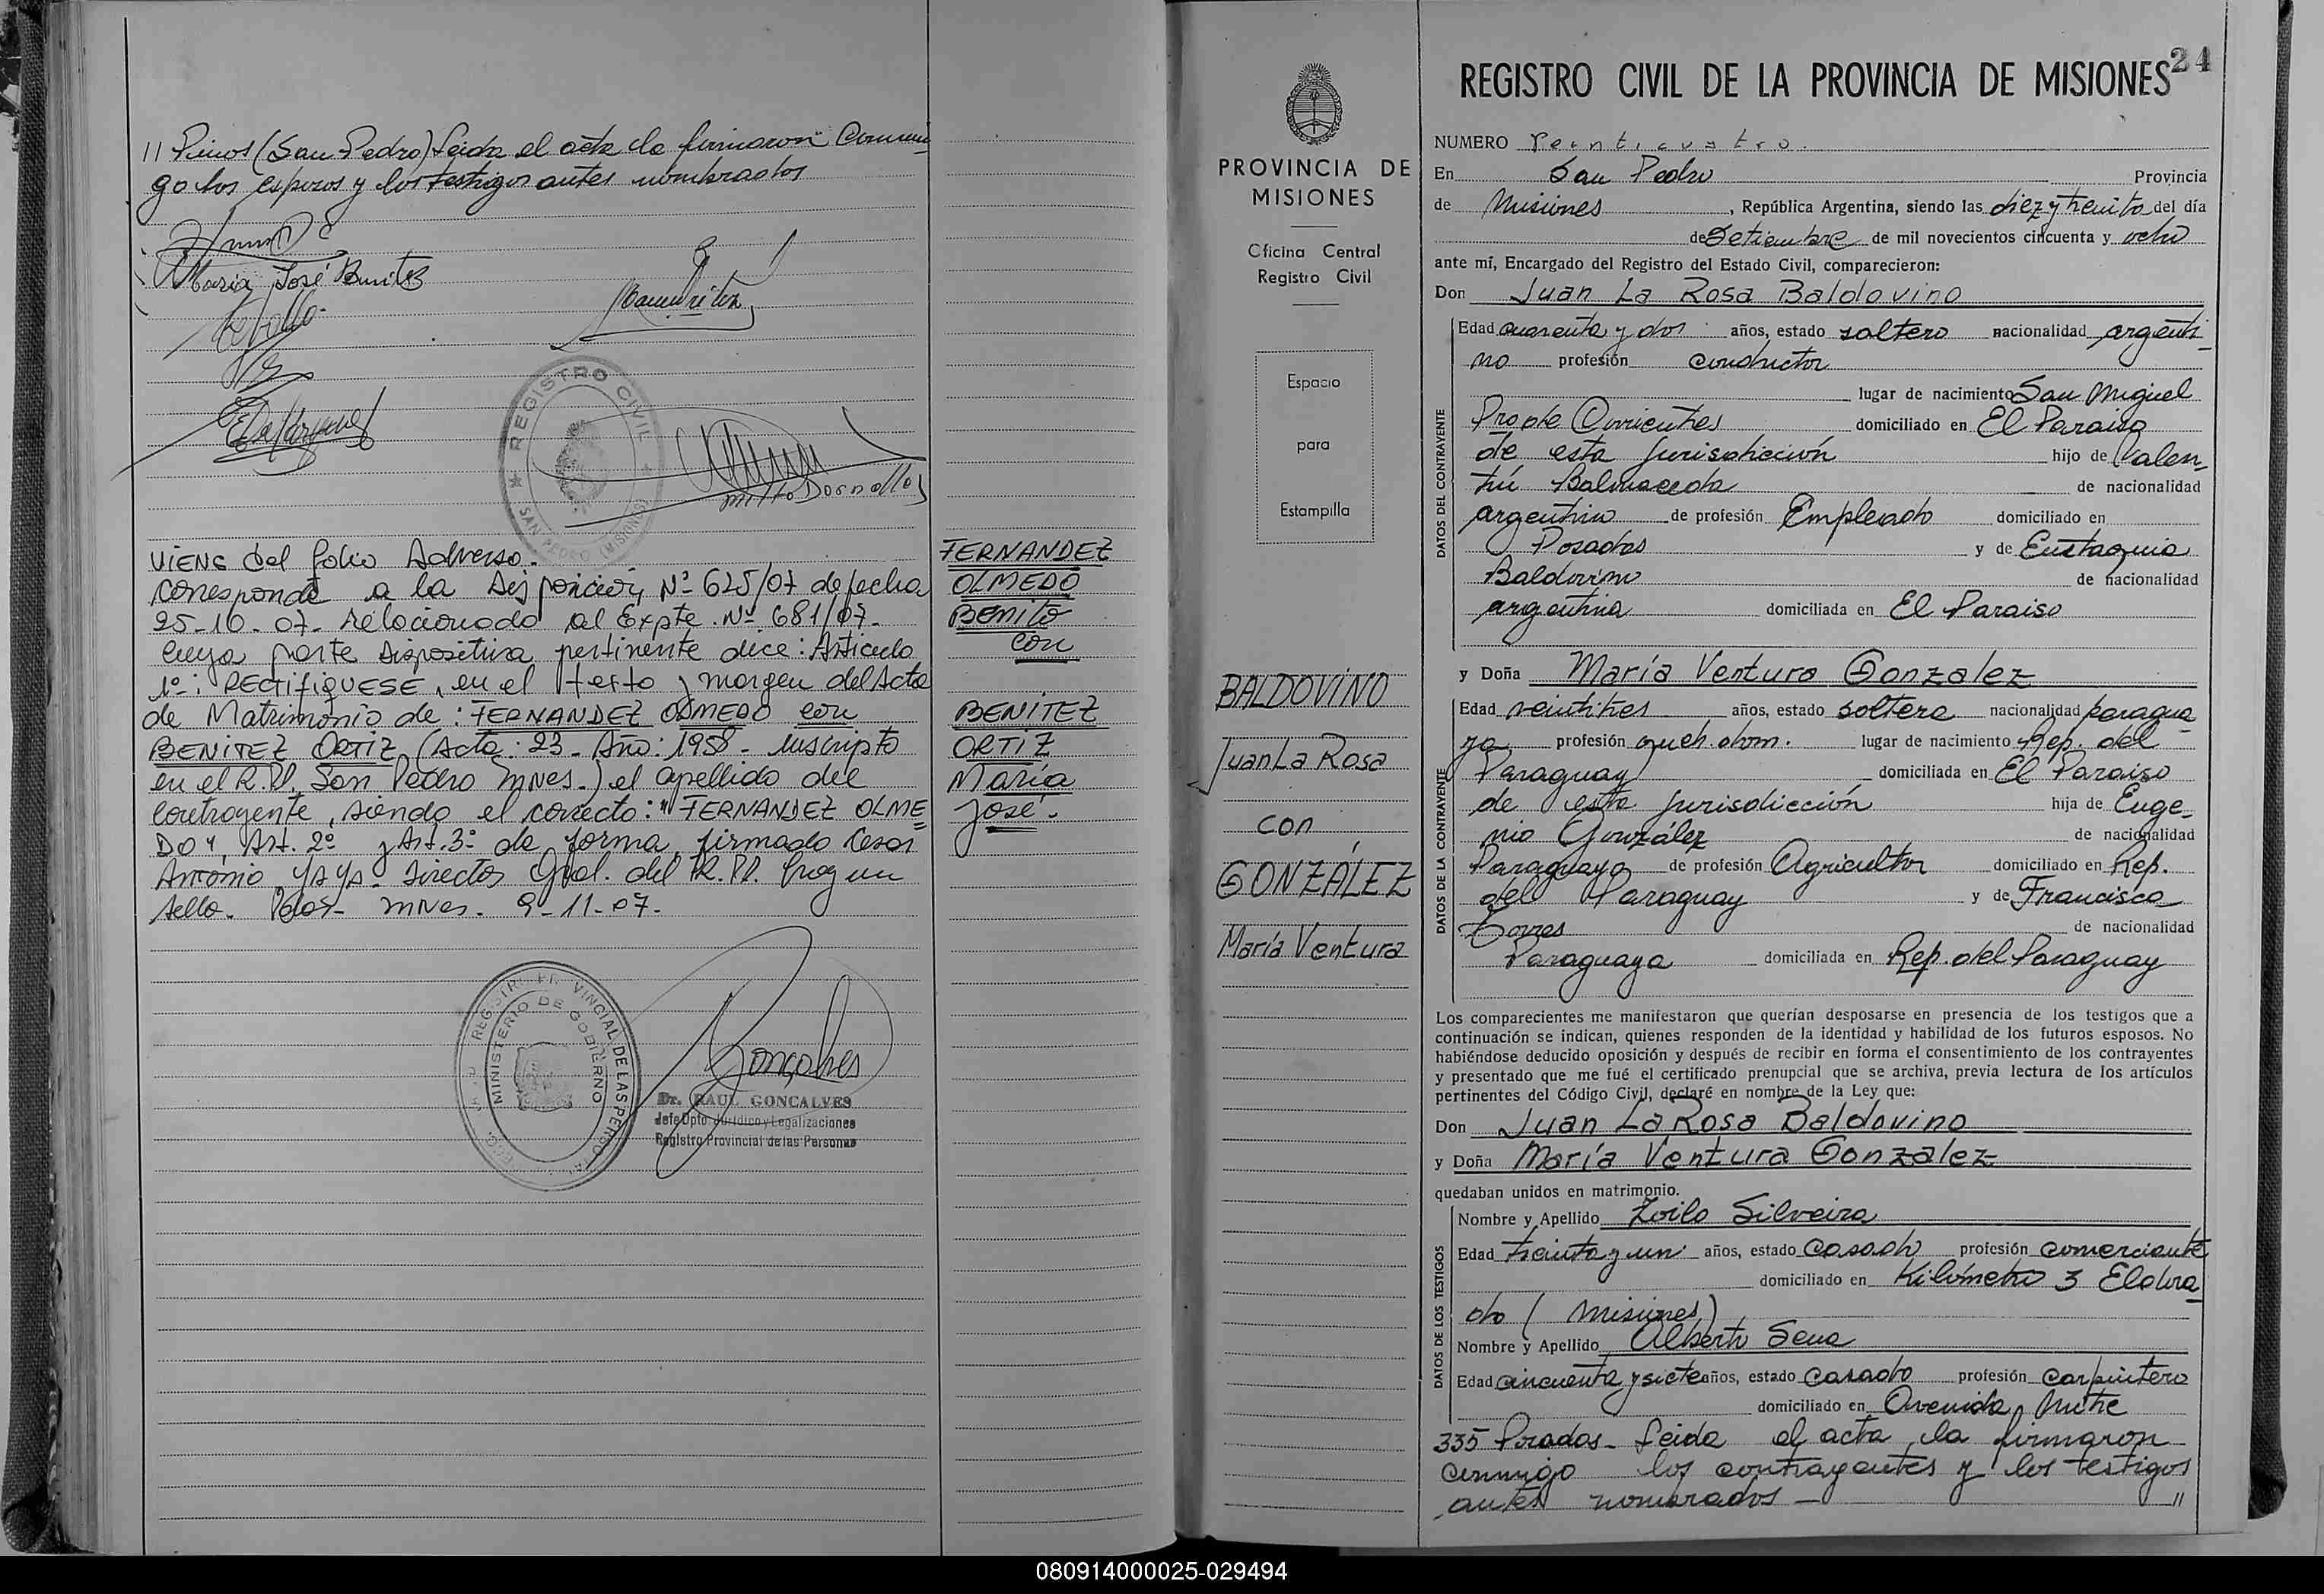 11 Pinos (San Pedro) Leida el acta la firmaron Conmi
go los esposos y los testigos antes nombrados
María José Benites
REGISTRO CIVIL
SAN PEDRO (MISIONES)
Milto Dornelles
VIENE del folio Adverso.-
corresponde a la Disposición Nº 625/07 de fecha
25-10-07- relacionado al Expte. Nº 681/07-
cuya parte Dispositiva pertinente dice: Articulo
1º: RECTIFIQUESE, en el texto y margen del Acta
de Matrimonio de: FERNANDEZ OLMEDO con
BENITEZ ORTIZ (Acta: 23- Año: 1958- Inscripto
en el R.P. San Pedro Mnes.) el apellido del
contrayente, siendo el correcto: "FERNANDEZ OLME
DO", Art. 2º y Art. 3º de forma, firmado Cesar
Antonio Director Gral. del R.P.P. Hay un
sello. Pdas- Mnes. 9-11-07-
FERNANDEZ
OLMEDO
Benito
con
BENITEZ
ORTIZ
María
José.-
REGISTRO PROVINCIAL DE LAS PERSONAS
MINISTERIO DE GOBIERNO
Gonçalves
Dr. RAUL GONCALVES
Jefe Dpto. Jurídico y Legalizaciones
Registro Provincial de las Personas
PROVINCIA DE
MISIONES
Oficina Central
Registro Civil
Espacio
para
Estampilla
BALDOVINO
Juan La Rosa
con
GONZÁLEZ
María Ventura
24
REGISTRO CIVIL DE LA PROVINCIA DE MISIONES
NUMERO Veinticuatro.
En San Pedro Provincia
de Misiones, República Argentina, siendo las diez y treinta del día
de Setiembre de mil novecientos cincuenta y ocho
ante mí, Encargado del Registro del Estado Civil, comparecieron:
Don Juan La Rosa Baldovino
DATOS DEL CONTRAYENTE
Edad cuarenta y dos años, estado soltero nacionalidad argenti
no profesión conductor
lugar de nacimiento San Miguel
Pro de Corrientes domiciliado en El Paraiso
de esta jurisdicción hijo de Valen-
tín Balmaceda de nacionalidad
argentina de profesión Empleado domiciliado en
Posadas y de Eustaquia
Baldovino de nacionalidad
argentina domiciliada en El Paraiso
y Doña María Ventura Gonzalez
DATOS DE LA CONTRAYENTE
Edad veintitres años, estado soltera nacionalidad paragua-
ya profesión queh. dom. lugar de nacimiento Rep. del
Paraguay domiciliada en El Paraiso
de esta jurisdicción hija de Euge-
nio González de nacionalidad
Paraguaya de profesión Agricultor domiciliado en Rep.
del Paraguay y de Francisca
Torres de nacionalidad
Paraguaya domiciliada en Rep. del Paraguay
Los comparecientes me manifestaron que querían desposarse en presencia de los testigos que a
continuación se indican, quienes responden de la identidad y habilidad de los futuros esposos. No
habiéndose deducido oposición y después de recibir en forma el consentimiento de los contrayentes
y presentado que me fué el certificado prenupcial que se archiva, previa lectura de los artículos
pertinentes del Código Civil, declaré en nombre de la Ley que:
Don Juan La Rosa Baldovino
y Doña María Ventura Gonzalez
quedaban unidos en matrimonio.
DATOS DE LOS TESTIGOS
Nombre y Apellido Zoilo Silveira
Edad treinta y un años, estado Casado profesión comerciante
domiciliado en Kilómetro 3 Eldora-
do (Misiones)
Nombre y Apellido Alberto Sena
Edad cincuenta y siete años, estado casado profesión carpintero
domiciliado en Avenida Mitre
335 Posadas- Leida el acta, la firmaron
conmigo los contrayentes y los testigos
antes nombrados — "
080914000025-029494